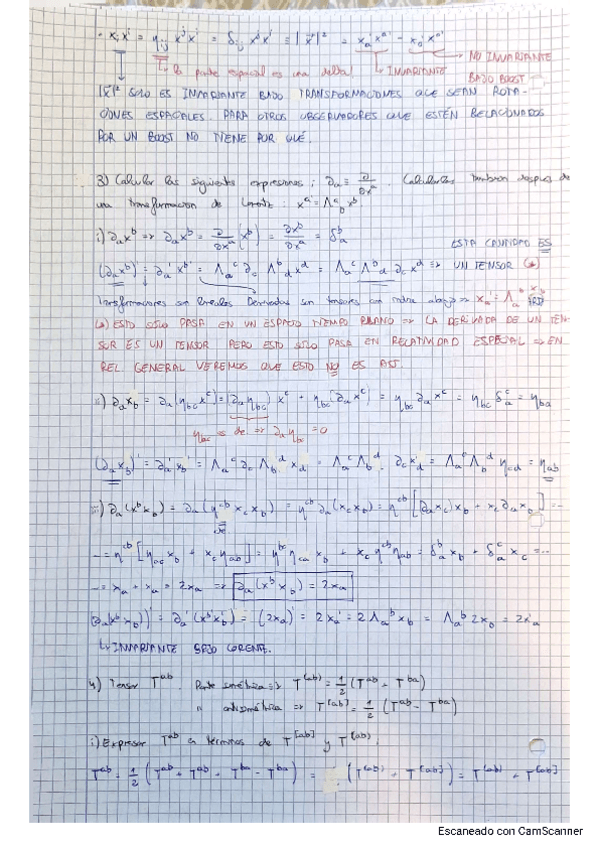 - xᵢxⁱ = ηᵢⱼ xʲxⁱ = δᵢⱼ xʲxⁱ ≡ |x⃗|² = xₐ'xᵃ' - x₀'x⁰'
NO INVARIANTE
BAJO BOOST
la parte espacial es una delta!
INVARIANTE
|x⃗|² SOLO ES INVARIANTE BAJO TRANSFORMACIONES QUE SEAN ROTA-
CIONES ESPACIALES. PARA OTROS OBSERVADORES QUE ESTÉN RELACIONADOS
POR UN BOOST NO TIENE POR QUÉ.
3) Calcular las siguientes expresiones: ∂ₐ ≡ ∂/∂xᵃ. Calcularlas tambien despues de
una transformacion de Lorentz: x'ᵃ = Λᵃ_b xᵇ
i) ∂ₐxᵇ => ∂ₐxᵇ = ∂/∂xᵃ (xᵇ) = ∂xᵇ/∂xᵃ = δₐᵇ
ESTA CANTIDAD ES
(∂ₐxᵇ)' = ∂ₐ'x'ᵇ = Λₐᶜ ∂_c Λᵇ_d xᵈ = Λₐᶜ Λᵇ_d ∂_c xᵈ => UN TENSOR (*)
Transformaciones son lineales Derivadas son tensores con indice abajo => xₐ' = Λₐᵇ x_b
(*) ESTO SOLO PASA EN UN ESPACIO TIEMPO PLANO => LA DERIVADA DE UN TEN-
SOR ES UN TENSOR. PERO ESTO SOLO PASA EN RELATIVIDAD ESPECIAL => EN
REL GENERAL VEREMOS QUE ESTO NO ES ASÍ.
ii) ∂ₐx_b = ∂ₐ(η_bc xᶜ) = (∂ₐη_bc) xᶜ + η_bc(∂ₐxᶜ) = η_bc ∂ₐxᶜ = η_bc δₐᶜ = η_ba
η_bc es cte => ∂ₐη_bc = 0
(∂ₐx_b)' = ∂ₐ'x_b' = Λₐᶜ ∂_c Λ_bᵈ x_d = Λₐᶜ Λ_bᵈ ∂_c x_d = Λₐᶜ Λ_bᵈ η_cd = η_ab
iii) ∂ₐ(xᵇx_b) = ∂ₐ(ηᶜᵇ x_c x_b) = ηᶜᵇ ∂ₐ(x_c x_b) = ηᶜᵇ [(∂ₐx_c)x_b + x_c ∂ₐx_b] = ...
cte
... = ηᶜᵇ [ηₐc x_b + x_c ηₐb] = ηᶜᵇ η_ca x_b + x_c ηᶜᵇ η_ab = δₐᵇ x_b + δₐᶜ x_c = ...
... = xₐ + xₐ = 2xₐ => ∂ₐ(xᵇx_b) = 2xₐ
(∂ₐ(xᵇx_b))' = ∂ₐ'(xᵇ'x_b') = (2xₐ)' = 2xₐ' = 2Λₐᵇ x_b = Λₐᵇ 2x_b = 2x'ₐ
↳ INVARIANTE BAJO LORENTZ.
4) Tensor Tᵃᵇ. Parte simétrica => T⁽ᵃᵇ⁾ = 1/2 (Tᵃᵇ + Tᵇᵃ)
" antisimétrica => T[ᵃᵇ] = 1/2 (Tᵃᵇ - Tᵇᵃ)
i) Expresar Tᵃᵇ en terminos de T[ᵃᵇ] y T⁽ᵃᵇ⁾.
Tᵃᵇ = 1/2 (Tᵃᵇ + Tᵃᵇ + Tᵇᵃ - Tᵇᵃ) = (T⁽ᵃᵇ⁾ + T[ᵃᵇ]) = T⁽ᵃᵇ⁾ + T[ᵃᵇ]
Escaneado con CamScanner